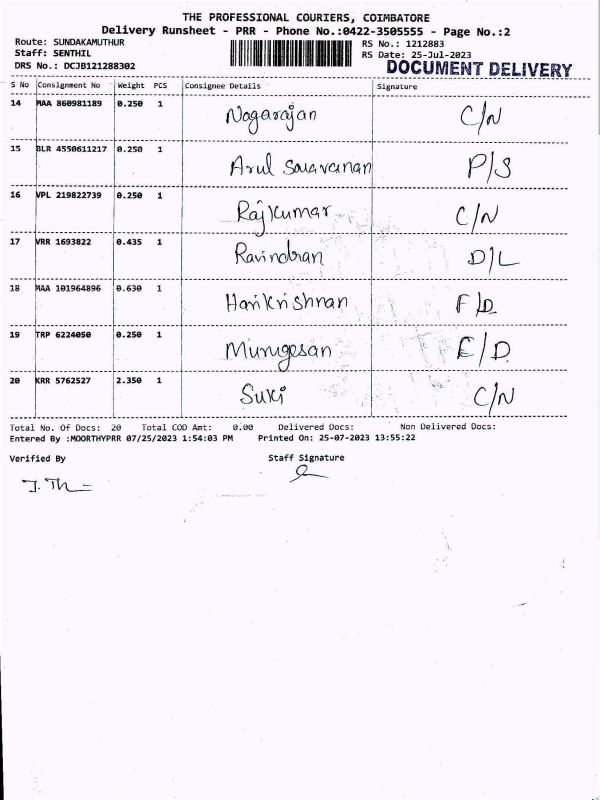 THE PROFESSIONAL COURIERS, COIMBATORE
Delivery Runsheet - PRR - Phone No.:0422-3505555 - Page No.:2
Route: SUNDAKAMUTHUR RS No.: 1212883
Staff: SENTHIL RS Date: 25-Jul-2023
DRS No.: DCJB121288302 DOCUMENT DELIVERY
S No Consignment No Weight PCS Consignee Details Signature
14 MAA 860981189 0.250 1 Nagarajan C/N
15 BLR 4550611217 0.250 1 Arul Saravanan P/S
16 VPL 219822739 0.250 1 Rajkumar C/N
17 VRR 1693822 0.435 1 Ravindran D/L
18 MAA 101964896 0.630 1 Harikrishnan F/D
19 TRP 6224050 0.250 1 Murugesan E/D
20 KRR 5762527 2.350 1 Suki C/N
Total No. Of Docs: 20 Total COD Amt: 0.00 Delivered Docs: Non Delivered Docs:
Entered By :MOORTHYPRR 07/25/2023 1:54:03 PM Printed On: 25-07-2023 13:55:22
Verified By Staff Signature